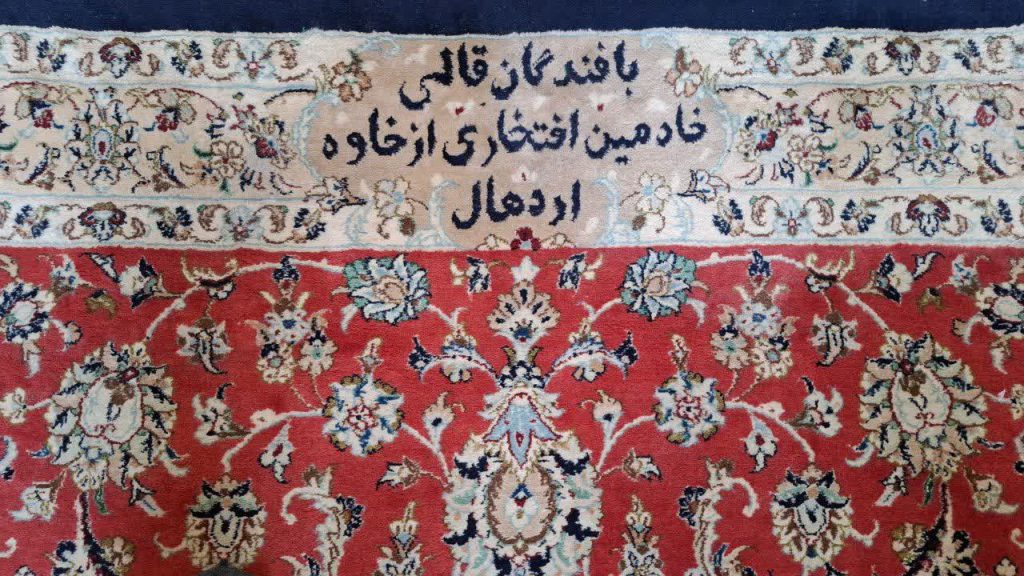 بافندگان قالی
خادمین افتخاری از خاوه
اردهال